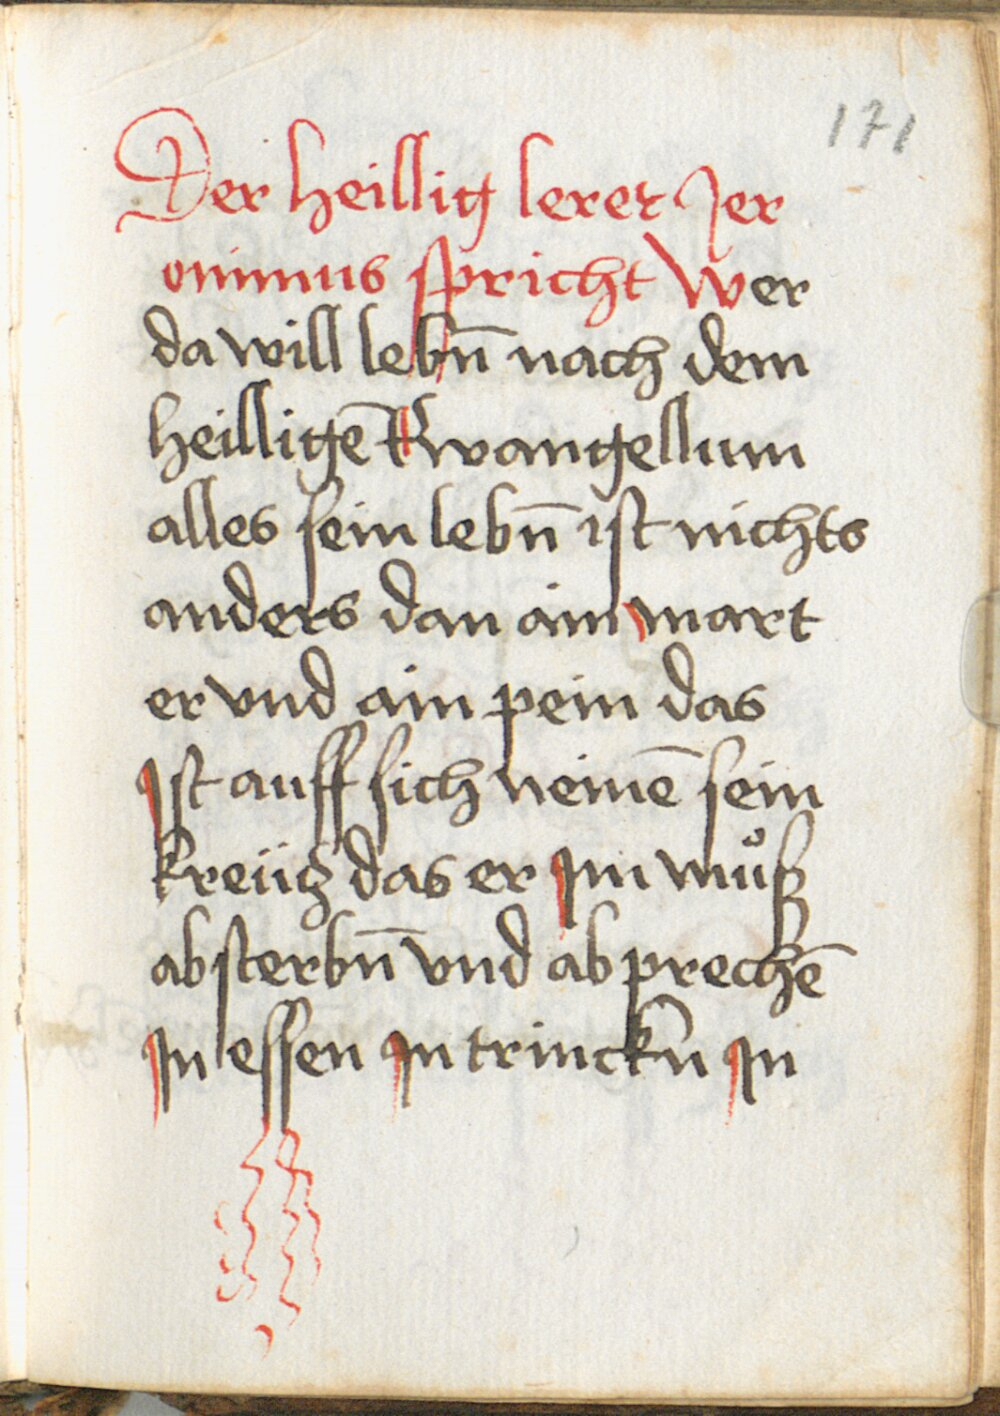 171
Der heillig lerer Jer
onimus spricht Wer
da will lebn̄ nach dem
heilligē Ewangellum
alles sein lebn̄ ist nichts
anders dan ain mart
er vnd ain pein das
Ist auff sich nemē sein
kreücz das er Im muͦß
absterbn̄ vnd ab prechē
In essen In trinckn̄ In